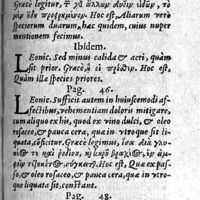 Græcè legitur, τ̀ ἄλλων δυεῖν εἰδῶν,
μὲν ἴδε Hoc est, Aliarum verò
specierum duarum, hæc quidem, cuius nuper
mentionem fecimus.
Ibidem.
LEonic. Sed minus calida & acri, quàm
sit prior. Græcè, ἢ οἱ πρόσθεν. Hoc est,
Quàm illæ species priores.
Pag. 46.
LEonic. Sufficit autem in huiuscemodi af-
fectibus, vehementiam doloris mitigare,
cum aliquo ex his, quod ex vino dulci, & oleo
rosaceo, & pauca cera, quæ in vtroque sit li-
quata, cõficitur. Græcè legimus,
καὶ ῥοδίου, κηροῦ βραχέος, ἐν ἀμ-
Hoc est, Quæ ex pas-
so, & oleo rosaceo, & pauca cera, quæ in vtro-
que liquata sit, constant.
Pag. 48.